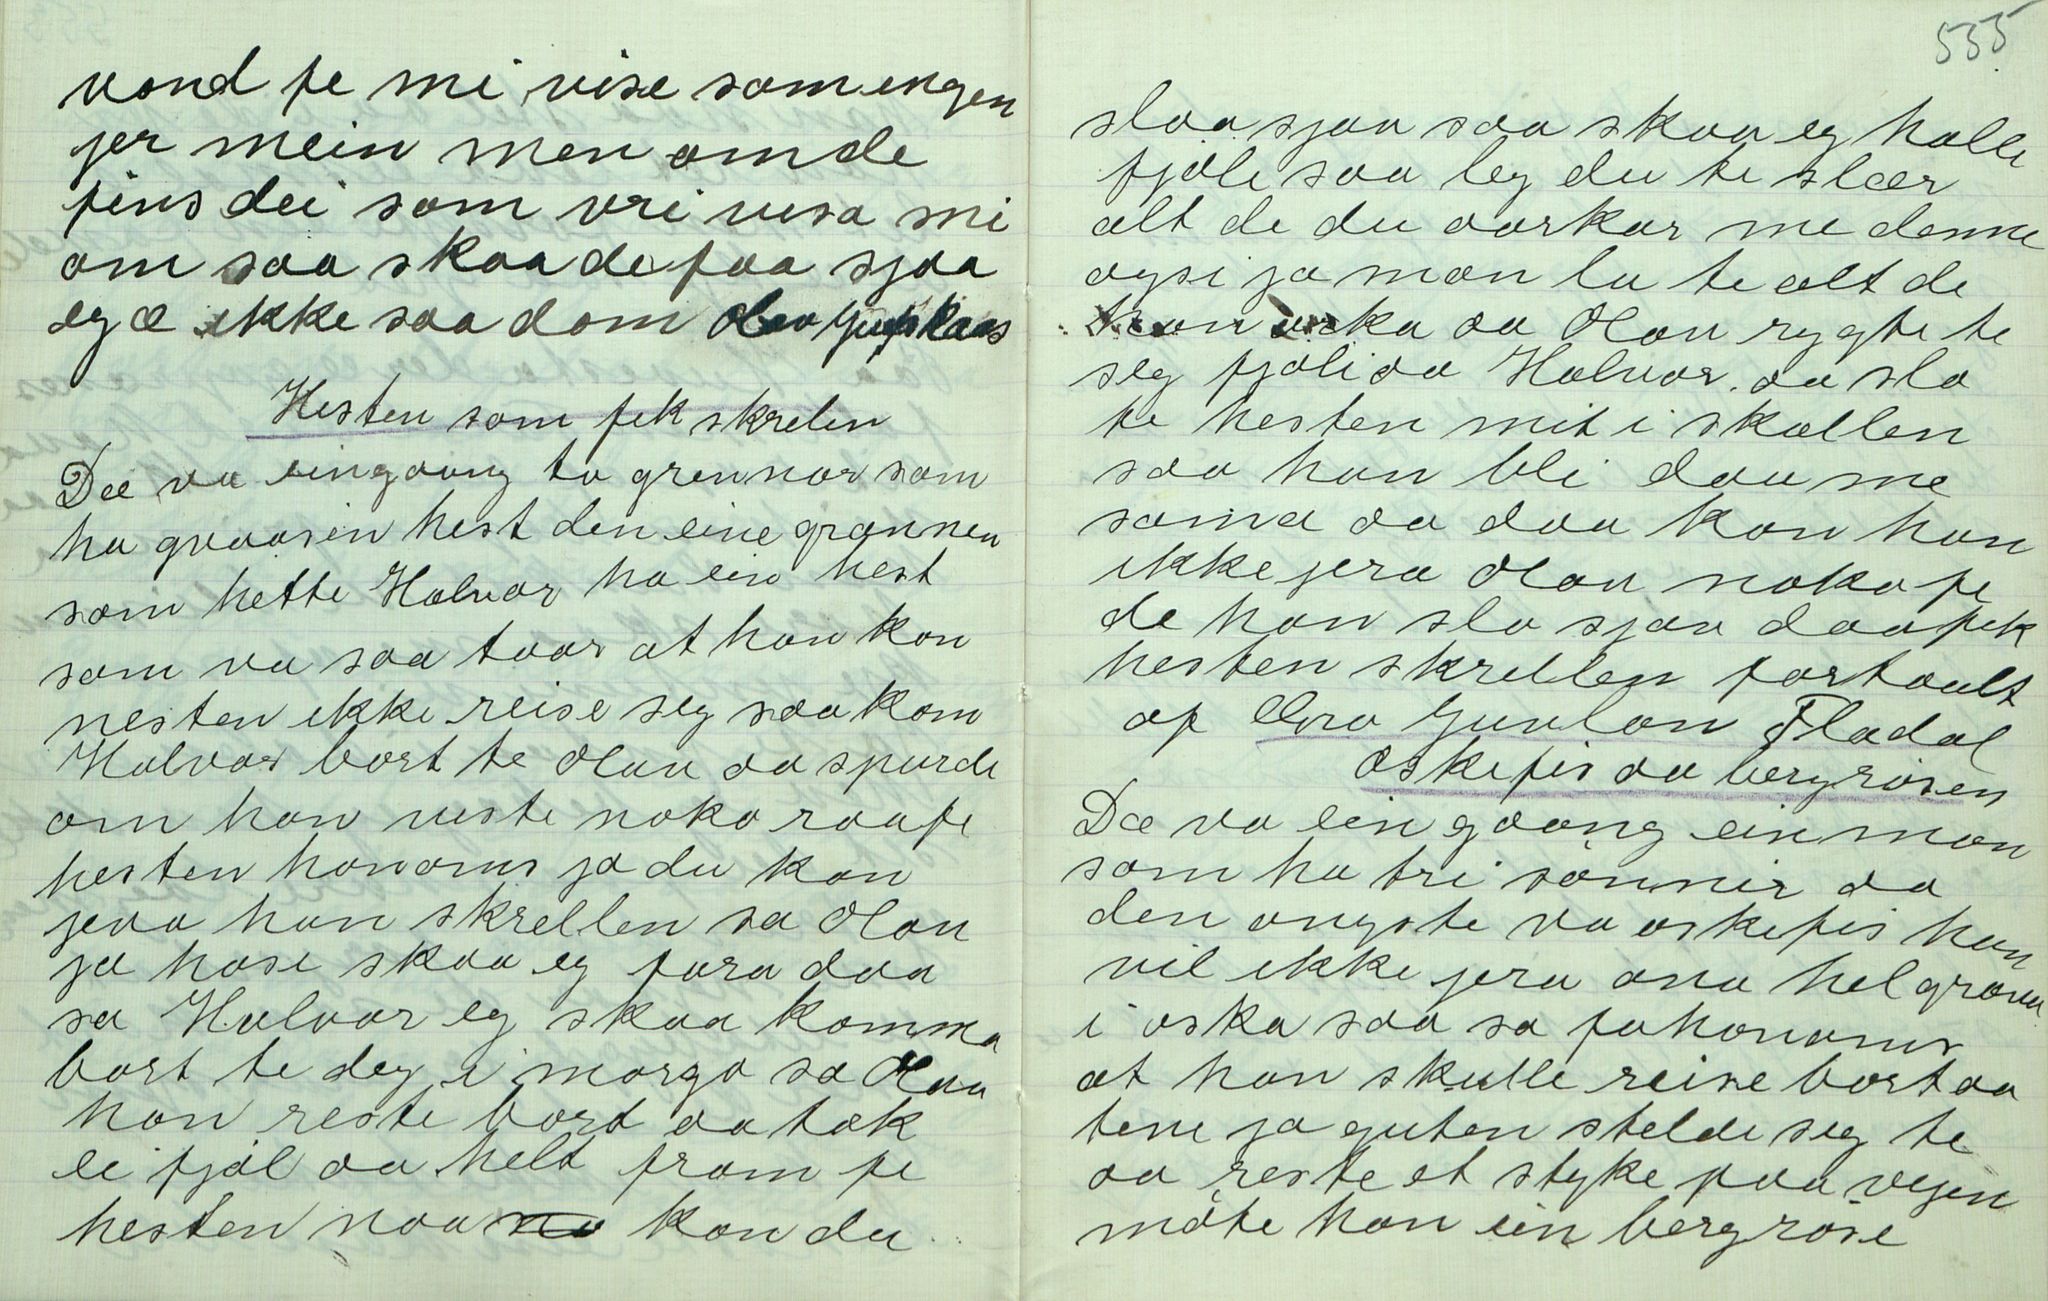 vond fe mi vise som engen
jer mein men om de
fins dei som vri visa mi
om saa skaa de faa sjaa
eg æ ikke saa dom Olav
Hesten som fek skrelen
Dæ va eingaang to grennar som
ha qvaarsin hest den eine grannen
som hette Halvor ha ein hest
som va saa taar at han kon
nesten ikke reise seg saa kom
Halvor bort te Olav aa spurde
om han veste noko raa fe
hesten hanoms ja du kan
jeva han skrellen sa Olav
ja hosi skaa eg fara daa
sa Halvor eg skaa komma
bort te deg i morgo sa Olav
han reste bort aa tok
ei fjøl aa helt fram fe
hesten naa kan du
555
slaa sjaa saa skaa eg halle
fjøle saa leg du te slær
alt de du aarkar me denne
øysi ja man la te alt de
han orka aa Olav rygte te
seg fjøli aa Halvor aa slo
te hesten mit i skallen
saa han bli dau me
soma aa daa kon han
ikke jera Olav noko fe
de han slo sjaa daa fek
hesten skrellen fortault
af Gro Gunlau Fladal
Oskefis aa bergrisen
Dæ va ein gaang ein man
som ha tri sønnir aa
den øngste va oskefis han
vil ikke jera ana hel grava
i oska saa sa fa hanoms
at han skulle reise bort aa
tene ja guten stelde seg te
aa reste et styke paa vejen
møte han ein bergrise